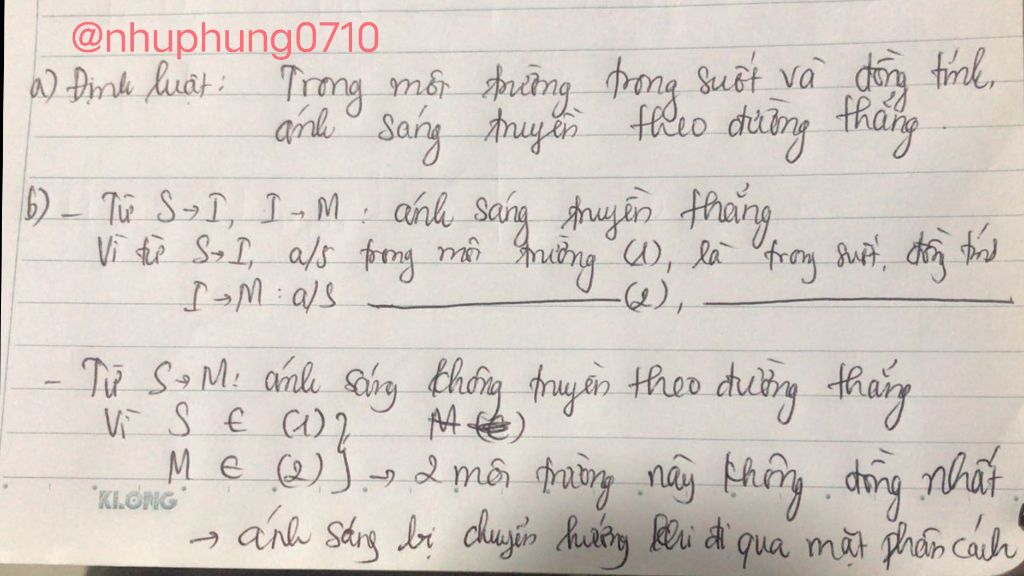 @nhuphung0710
a) Định luật: Trong môi trường trong suốt và đồng tính,
ánh sáng truyền theo đường thẳng.
b) - Từ S→I, I→M: ánh sáng truyền thẳng
Vì từ S→I, a/s trong môi trường (1), là trong suốt, đồng tính
I→M: a/s ———— (2), ————
- Từ S→M: ánh sáng không truyền theo đường thẳng
Vì S ∈ (1) } M
M ∈ (2) } → 2 môi trường này không đồng nhất
KLONG
→ ánh sáng bị chuyển hướng khi đi qua mặt phân cách